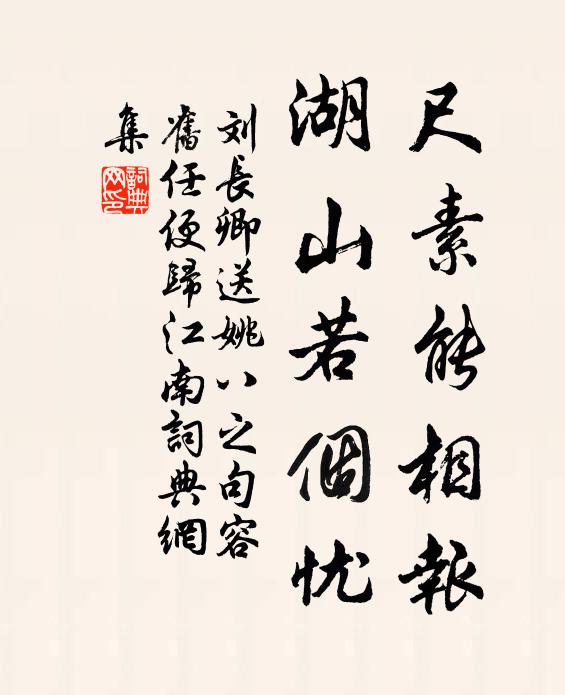 尺素能相報
湖山若個忧
刘長卿送姚八之句容
舊任便歸江南詞典網
集
詞典
网印